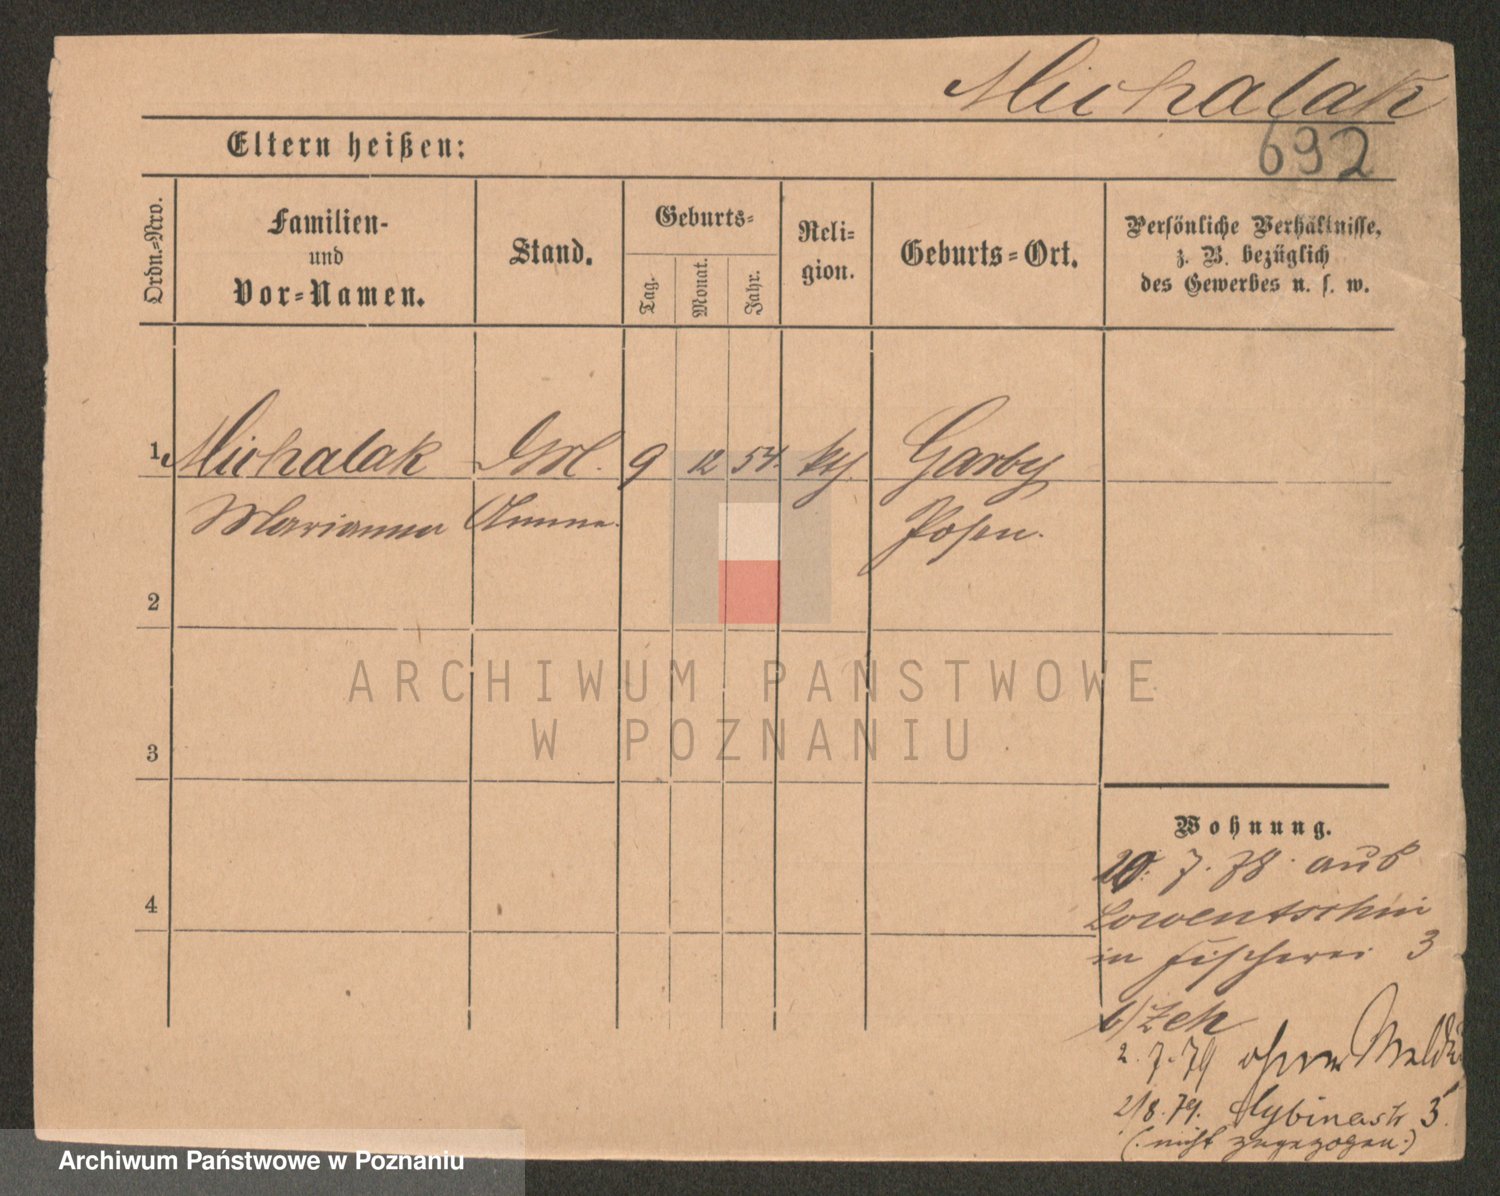 Michalak
692
Eltern heißen:
Ordn.-Nro.
Familien-
und
Vor-Namen.
Stand.
Geburts-
Tag.
Monat.
Jahr.
Reli-
gion.
Geburts-Ort.
Persönliche Verhältnisse,
z. B. bezüglich
des Gewerbes u. s. w.
1 Michalak 9 12 54. kth. Garby
Marianna Amme. Posen.
2
3
4
ARCHIWUM PAŃSTWOWE
W POZNANIU
Wohnung.
20. 7. 78. aus
Lowentschin
in Fischerei 3
b/Zeh
2. 7. 79 ohne
2/8. 79. 3.
(nicht zugezogen.)
Archiwum Państwowe w Poznaniu